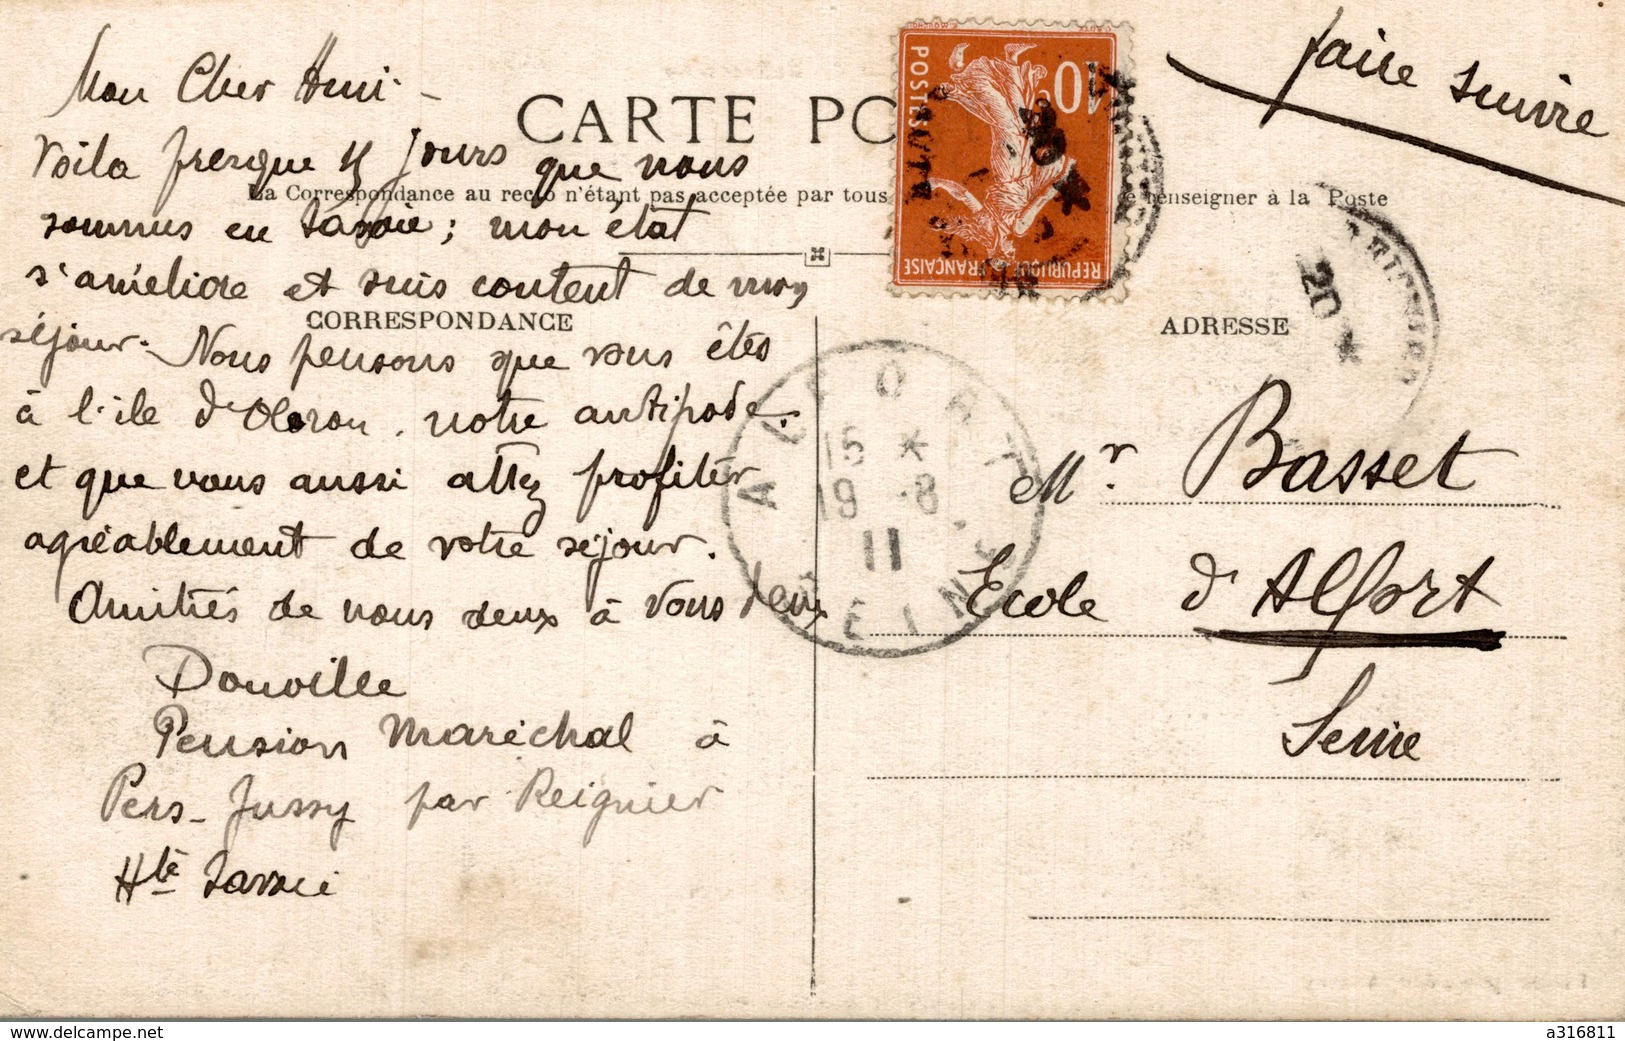 Mon Cher Ami -
Voila presque 15 jours que nous
sommes en Savoie ; mon état
s'améliore et suis content de mon
séjour. Nous pensons que vous êtes
à l'ile d'Oleron, notre antipode.
et que vous aussi allez profiter
agréablement de votre séjour.
Amitiés de nous deux à vous deux
Douville
Pension Maréchal à
Pers-Jussy par Reignier
Hte Savoie
CARTE PO
La Correspondance au recto n'étant pas acceptée par tous
renseigner à la Poste
CORRESPONDANCE
ADRESSE
faire suivre
POSTES
10
REPUBLIQUE FRANÇAISE
20 *
ALFORT
15 *
19 -8
11
SEINE
Mr. Basset
Ecole d'Alfort
Seine
www.delcampe.net
a316811